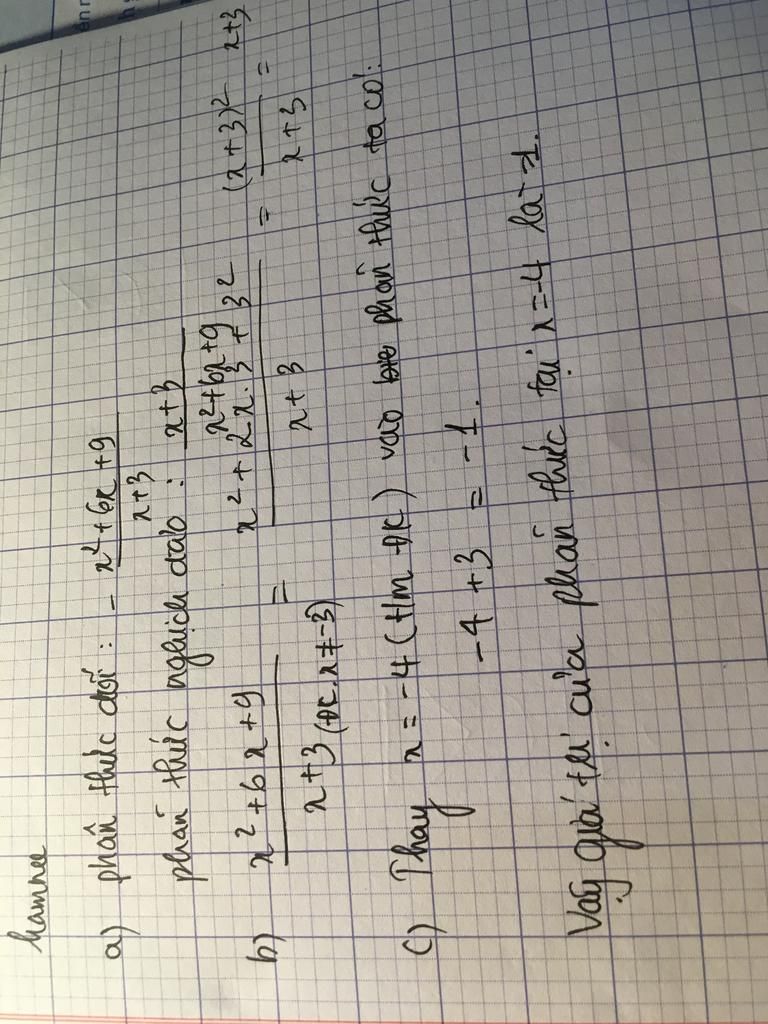 hamhee
a) phân thức đối : - \frac{x² + 6x + 9}{x + 3}
phân thức nghịch đảo : \frac{x + 3}{x² + 6x + 9}
b) \frac{x² + 6x + 9}{x + 3 (ĐK. x ≠ -3)} = \frac{x² + 2x . 3 + 3²}{x + 3} = \frac{(x + 3)²}{x + 3} = x + 3
c) Thay x = -4 (t/m ĐK) vào phân thức ta có:
-4 + 3 = -1.
Vậy giá trị của phân thức tại x = -4 là -1.